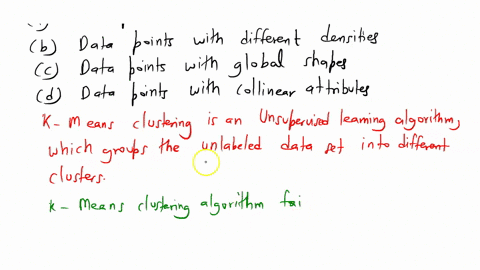 (b) Data points with different densities
(c) Data points with global shapes
(d) Data points with collinear attributes
K-Means clustering is an Unsupervised learning algorithm,
which groups the unlabeled data set into different
clusters.
K-Means clustering algorithm fai